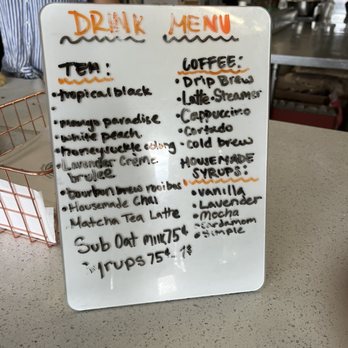 DRINK MENU
TEA:
• tropical black
•
• mango paradise
• white peach
• honeysuckle oolong
• Lavender Crème
brulee
• bourbon brew rooibos
• Housemade Chai
Matcha Tea Latte
Sub Oat Milk 75¢
Syrups 75¢
COFFEE:
• Drip Brew
• Latte-Steamer
• Cappuccino
• Cortado
• Cold brew
HOUSEMADE
SYRUPS:
• vanilla
• Lavender
• Mocha
• Cardamom
• Simple